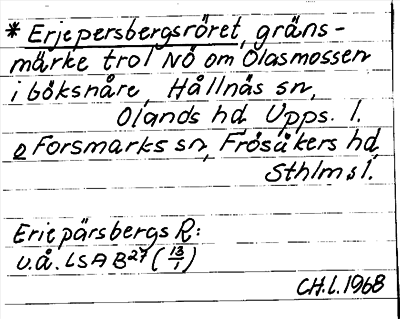 * Erjepersbergsröret, gräns-
märke trol NÖ om Olasmossen
i böksnåre, Hållnäs sn,
Olands hd Upps. l.
o Forsmarks sn, Frösåkers hd,
Sthlms l.
Eriepärsbergs R:
u.å. LSA B27 (13/1)
CH.l.1968